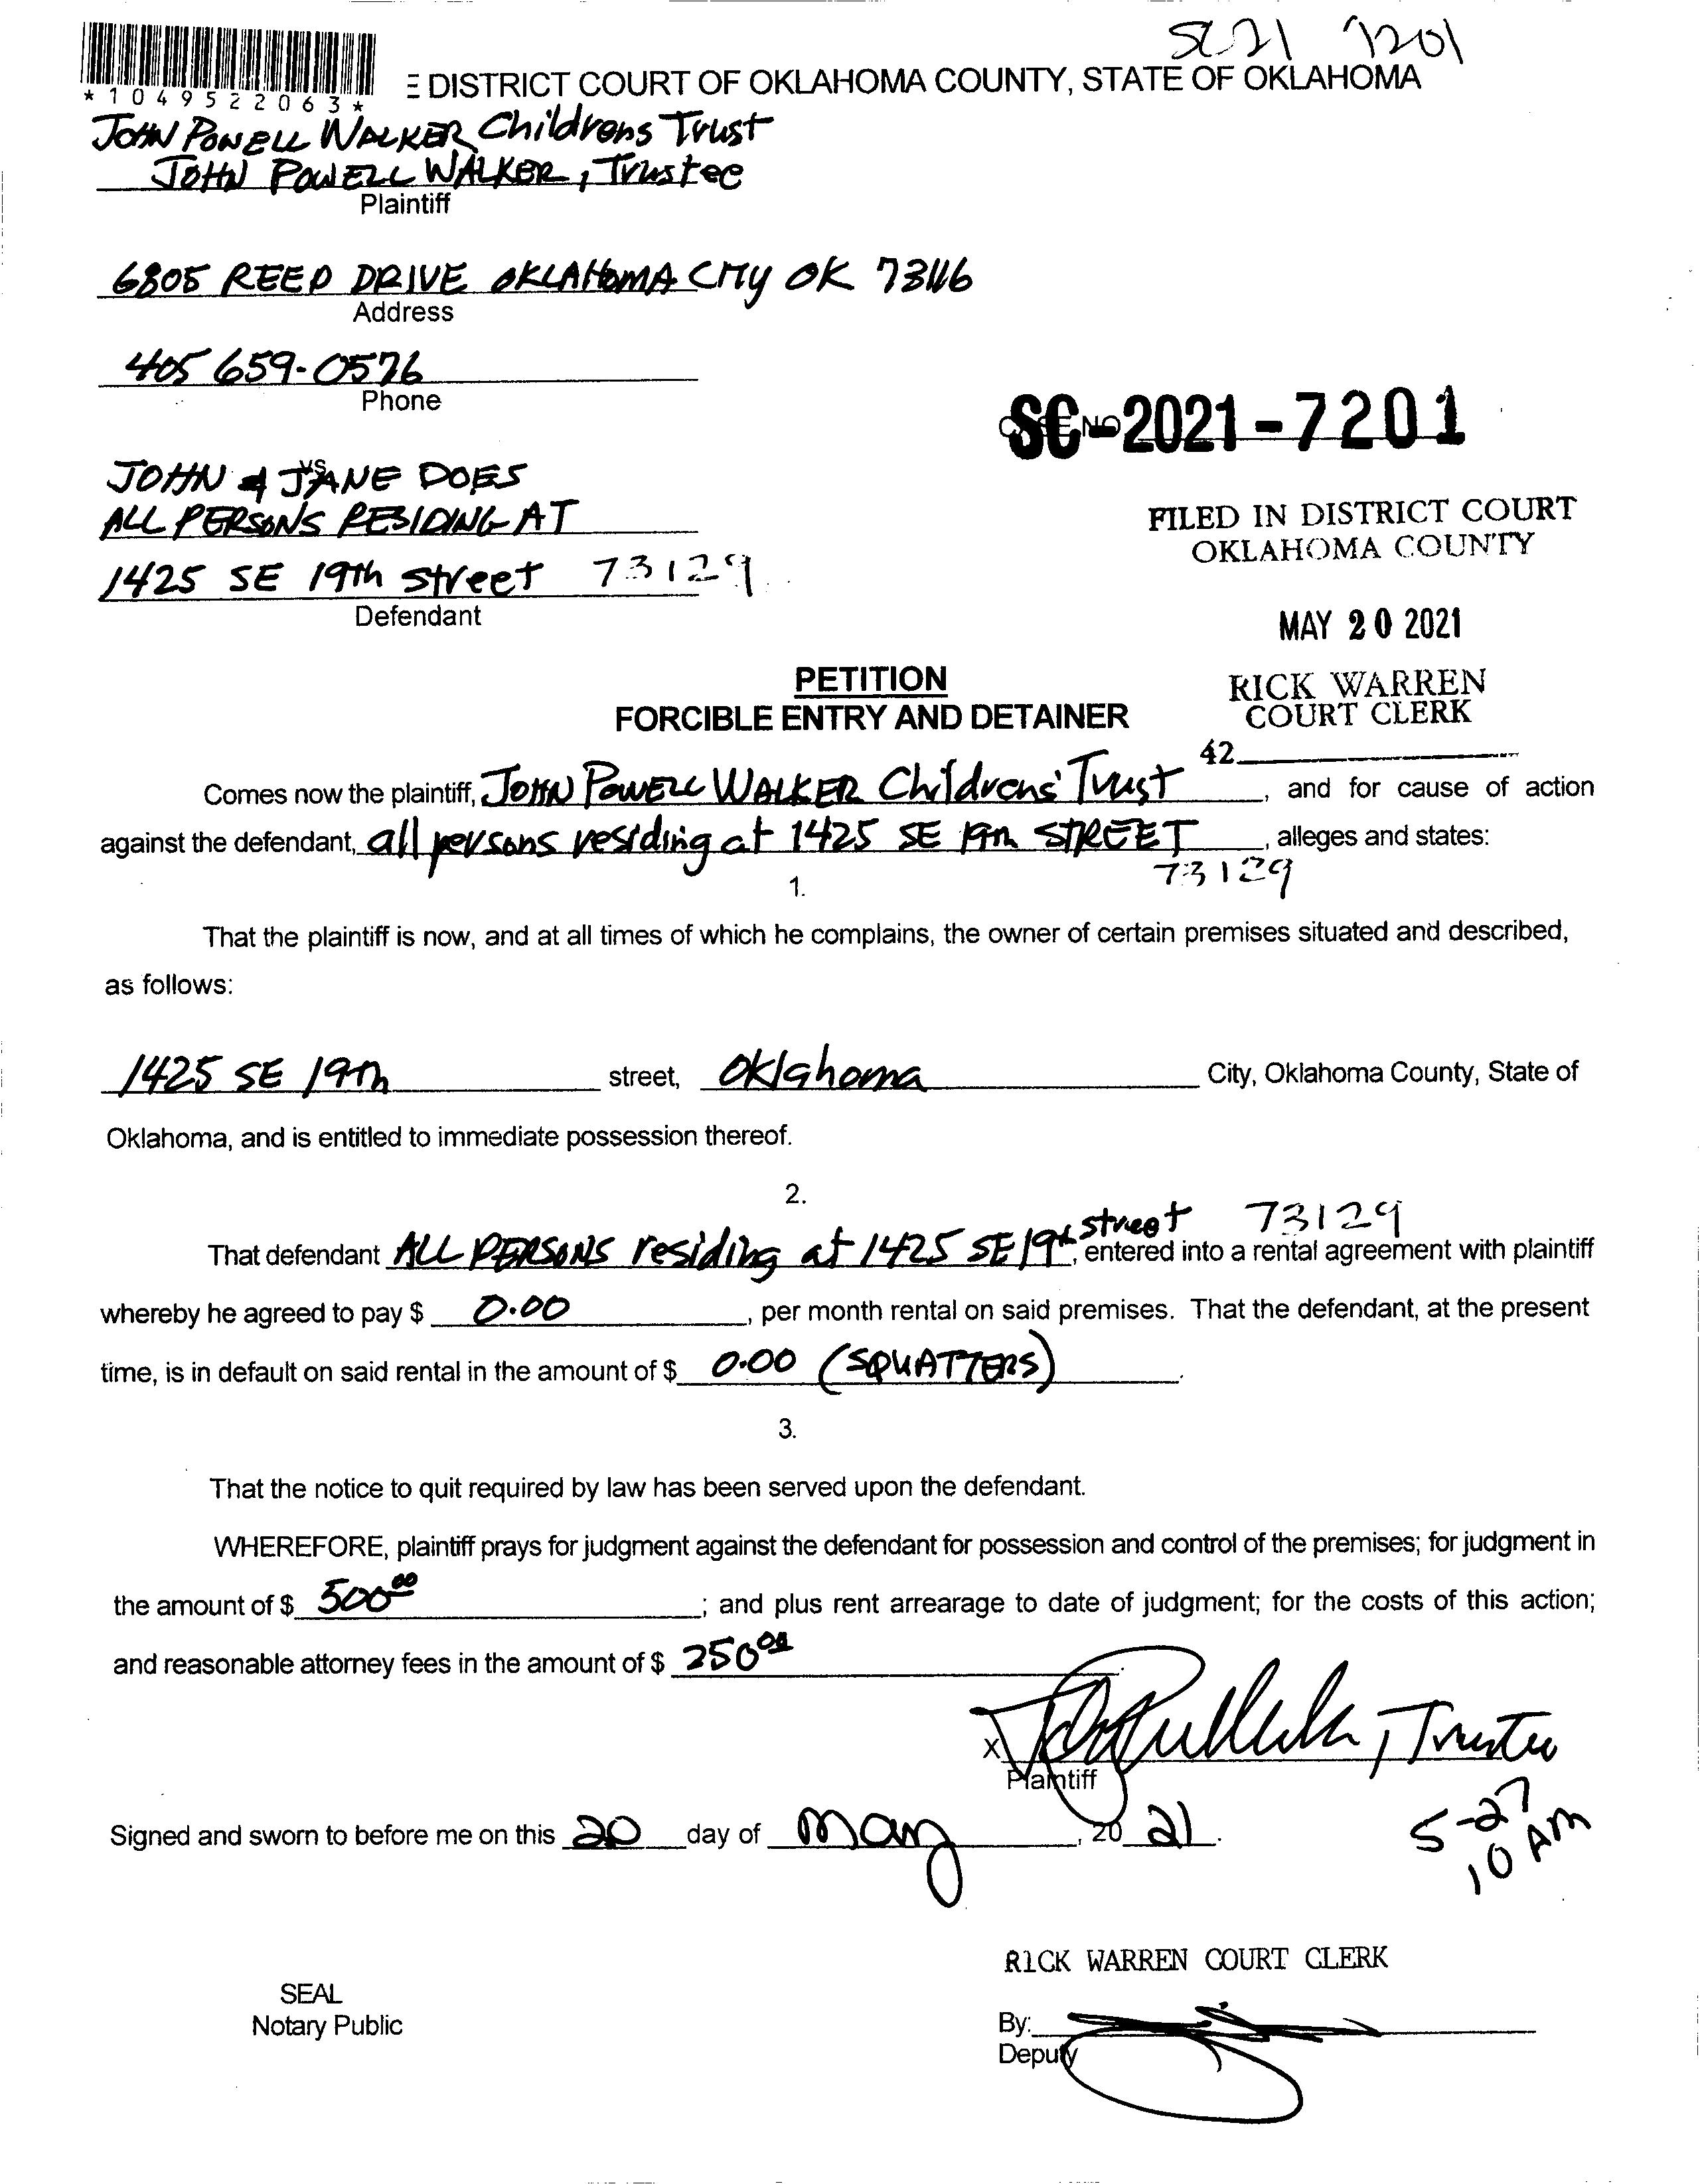 SC21 7201
*1049522063*
E DISTRICT COURT OF OKLAHOMA COUNTY, STATE OF OKLAHOMA
JOHN POWELL WALKER Childrens Trust
JOHN POWELL WALKER, Trustee
Plaintiff
6805 REED DRIVE OKLAHOMA CITY OK 73116
Address
405 659-0576
Phone
SC-2021-7201
CASE NO
vs
JOHN & JANE DOES
ALL PERSONS RESIDING AT
1425 SE 19th street 73129
Defendant
FILED IN DISTRICT COURT
OKLAHOMA COUNTY
MAY 20 2021
RICK WARREN
COURT CLERK
42
PETITION
FORCIBLE ENTRY AND DETAINER
Comes now the plaintiff, JOHN POWELL WALKER Childrens' Trust, and for cause of action
against the defendant, all persons residing at 1425 SE 19th STREET, alleges and states:
73129
1.
That the plaintiff is now, and at all times of which he complains, the owner of certain premises situated and described,
as follows:
1425 SE 19th street, Oklahoma City, Oklahoma County, State of
Oklahoma, and is entitled to immediate possession thereof.
2.
That defendant ALL PERSONS residing at 1425 SE 19th street 73129, entered into a rental agreement with plaintiff
whereby he agreed to pay $ 0.00, per month rental on said premises. That the defendant, at the present
time, is in default on said rental in the amount of $ 0.00 (SQUATTERS).
3.
That the notice to quit required by law has been served upon the defendant.
WHEREFORE, plaintiff prays for judgment against the defendant for possession and control of the premises; for judgment in
the amount of $ 500.00; and plus rent arrearage to date of judgment; for the costs of this action;
and reasonable attorney fees in the amount of $ 250.00.
X , Trustee
Plaintiff
Signed and sworn to before me on this 20 day of May, 2021.
5-27
10 AM
RICK WARREN COURT CLERK
SEAL
Notary Public
By:
Deputy